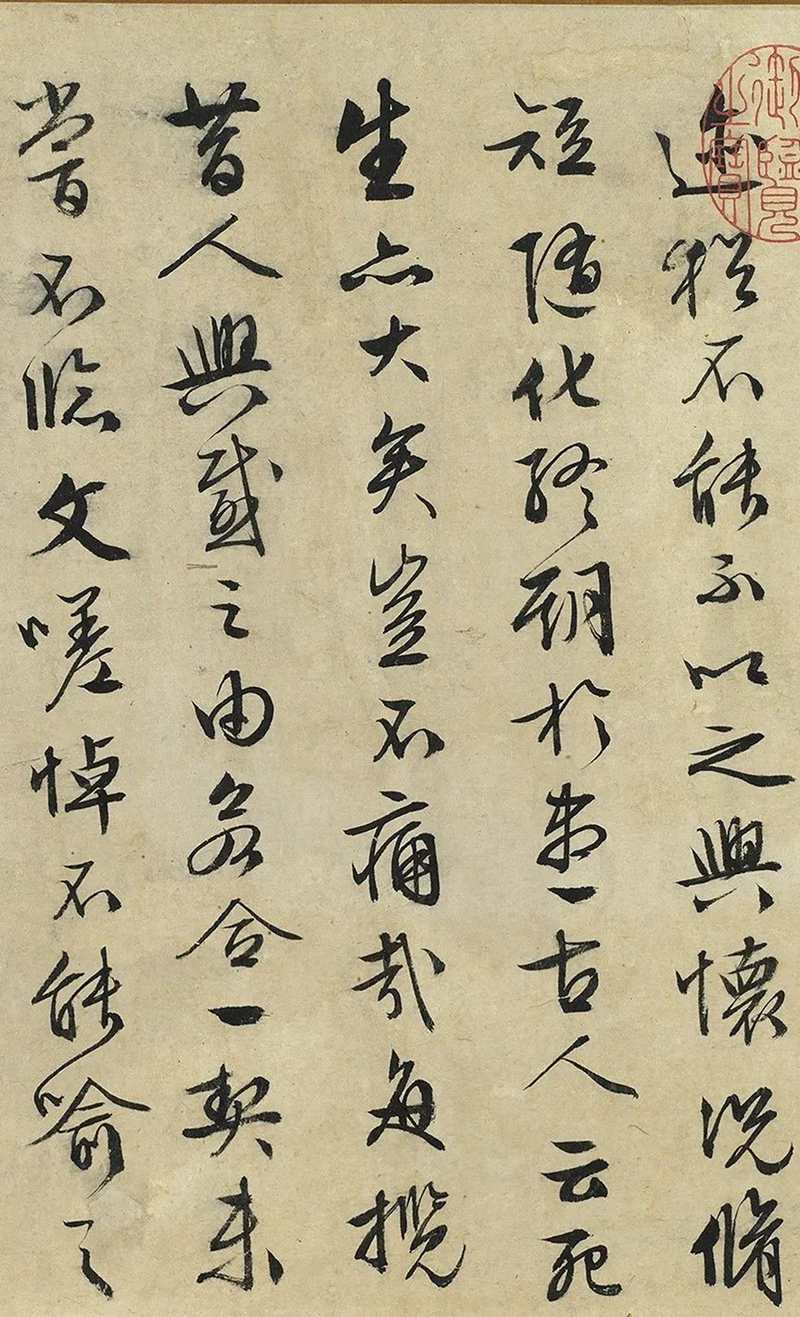 御覽
之寶
迹猶不能不以之興懷況脩
短隨化終期於盡古人云死
生亦大矣豈不痛哉每攬
昔人興感之由若合一契未
嘗不臨文嗟悼不能喻之